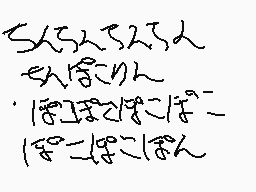 ちんちんちんちん
ちんぽこりん
ぽこぽこぽこぽこ
ぽこぽこぽん